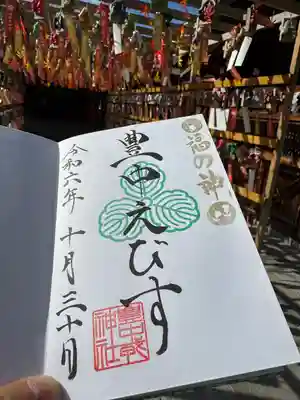 福の神
豊中えびす
豊中戎
神社
令和六年 十月三十日